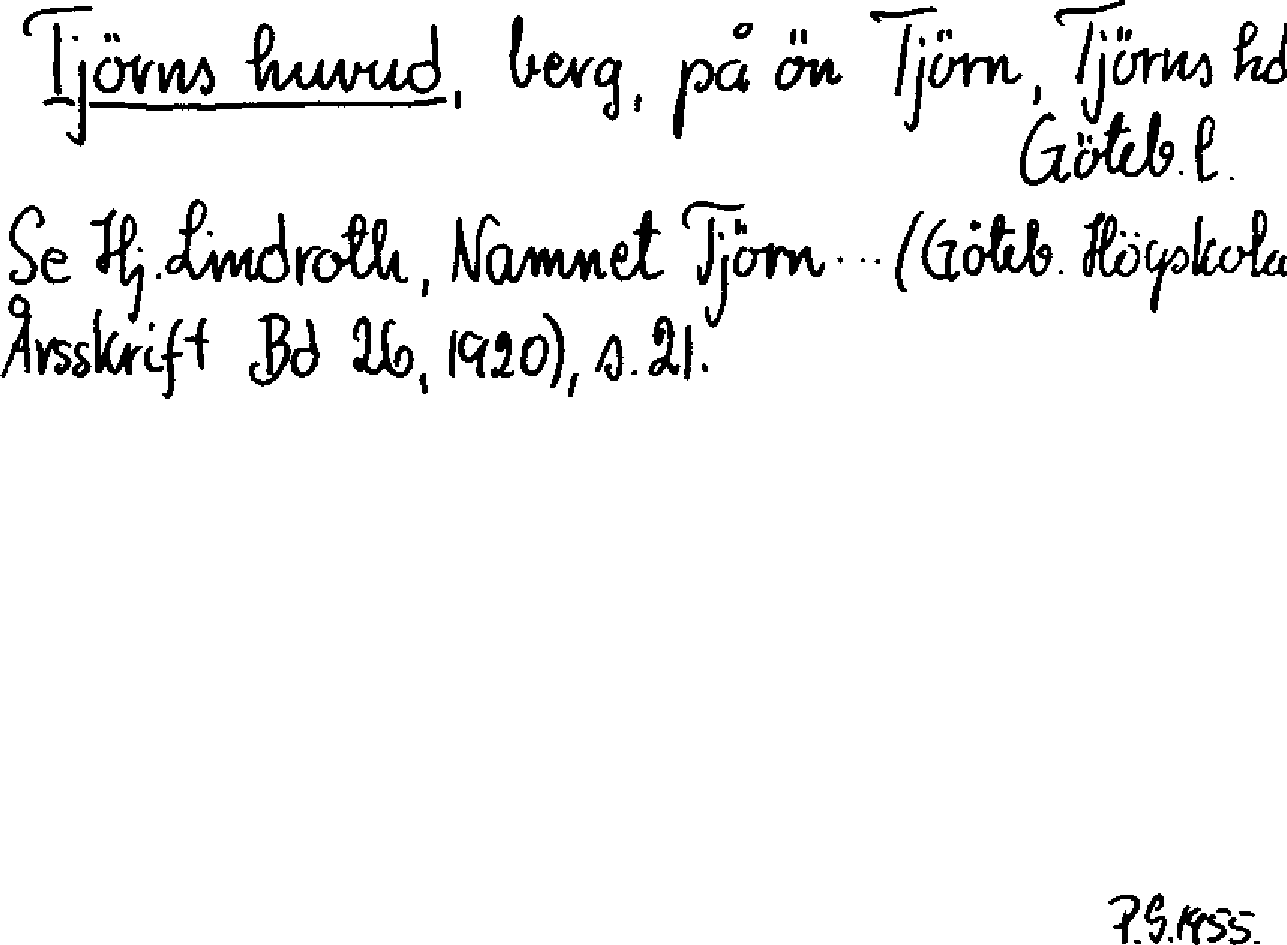 Tjörns huvud, berg, på ön Tjörn, Tjörns hd
Göteb. l.
Se Hj. Lindroth, Namnet Tjörn... (Göteb. Högskola
Årsskrift Bd 26, 1920), s. 21.
P.G. 1955.